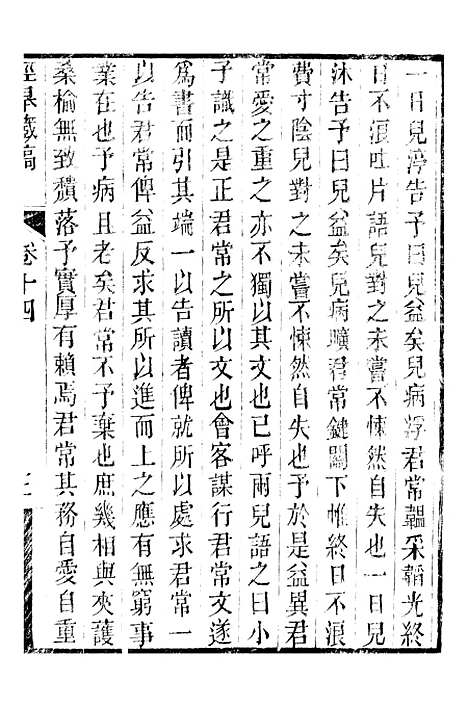 一日兒淳告予曰兒益矣兒病浮君常韞采韜光終
日不浪吐片語兒對之未嘗不悚然自失也一日兒
沐告予曰兒益矣兒病曠君常鍵關下帷終日不浪
費寸陰兒對之未嘗不悚然自失也予於是益異君
常愛之重之亦不獨以其文也已呼兩兒語之曰小
子識之是正君常之所以文也會客謀行君常文遂
爲書而引其端一以告讀者俾就所以處求君常一
以告君常俾益反求其所以進而上之應有無窮事
業在也予病且老矣君常不予棄也庶幾相與夾護
桑榆無致隤落予實厚有賴焉君常其務自愛自重
涇臯藏稿
卷十四
三